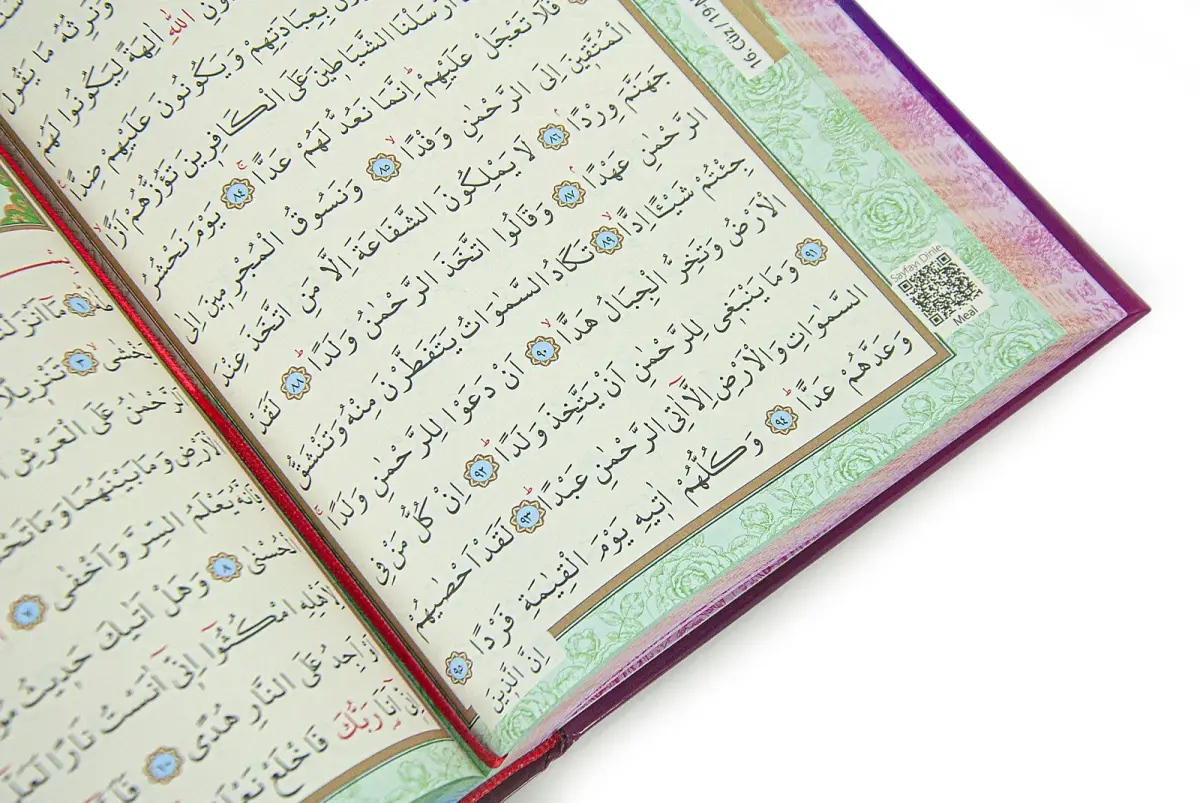 16. Cüz / 19-
وَنَرِثُهُ مَا يَقُولُ
دُونِ اللّٰهِ اٰلِهَةً لِيَكُونُوا لَهُمْ
بِعِبَادَتِهِمْ وَيَكُونُونَ عَلَيْهِمْ ضِدًّا
اَرْسَلْنَا الشَّيَاطِينَ عَلَى الْكَافِرِينَ تَؤُزُّهُمْ اَزًّا
فَلَا تَعْجَلْ عَلَيْهِمْ اِنَّمَا نَعُدُّ لَهُمْ عَدًّا ٨٤ يَوْمَ نَحْشُرُ
الْمُتَّقِينَ اِلَى الرَّحْمٰنِ وَفْدًا ٨٥ وَنَسُوقُ الْمُجْرِمِينَ اِلٰى
جَهَنَّمَ وِرْدًا ٨٦ لَا يَمْلِكُونَ الشَّفَاعَةَ اِلَّا مَنِ اتَّخَذَ عِنْدَ
الرَّحْمٰنِ عَهْدًا ٨٧ وَقَالُوا اتَّخَذَ الرَّحْمٰنُ وَلَدًا ٨٨ لَقَدْ
جِئْتُمْ شَيْـًٔا اِدًّا ٨٩ تَكَادُ السَّمٰوَاتُ يَتَفَطَّرْنَ مِنْهُ وَتَنْشَقُّ
الْاَرْضُ وَتَخِرُّ الْجِبَالُ هَدًّا ٩٠ اَنْ دَعَوْا لِلرَّحْمٰنِ وَلَدًا
٩١ وَمَا يَنْبَغِى لِلرَّحْمٰنِ اَنْ يَتَّخِذَ وَلَدًا ٩٢ اِنْ كُلُّ مَنْ فِى
السَّمٰوَاتِ وَالْاَرْضِ اِلَّٓا اٰتِى الرَّحْمٰنِ عَبْدًا ٩٣ لَقَدْ اَحْصٰيهُمْ
وَعَدَّهُمْ عَدًّا ٩٤ وَكُلُّهُمْ اٰتِيهِ يَوْمَ الْقِيٰمَةِ فَرْدًا ٩٥
اِنَّ الَّذِينَ
Sayfayı Dinle
Meal
١ مَٓا اَنْزَلْنَا
٣ تَنْزِيلًا
اَلرَّحْمٰنُ عَلَى الْعَرْشِ
الْاَرْضِ وَمَا بَيْنَهُمَا وَمَا تَحْتَ
فَاِنَّهُ يَعْلَمُ السِّرَّ وَاَخْفٰى ٧
الْحُسْنٰى ٨ وَهَلْ اَتٰيكَ حَدِيثُ
لِاَهْلِهِ امْكُثُٓوا اِنِّٓى اٰنَسْتُ نَارًا
اَوْ اَجِدُ عَلَى النَّارِ هُدًى ١٠
اِنِّٓى اَنَا۬ رَبُّكَ فَاخْلَعْ